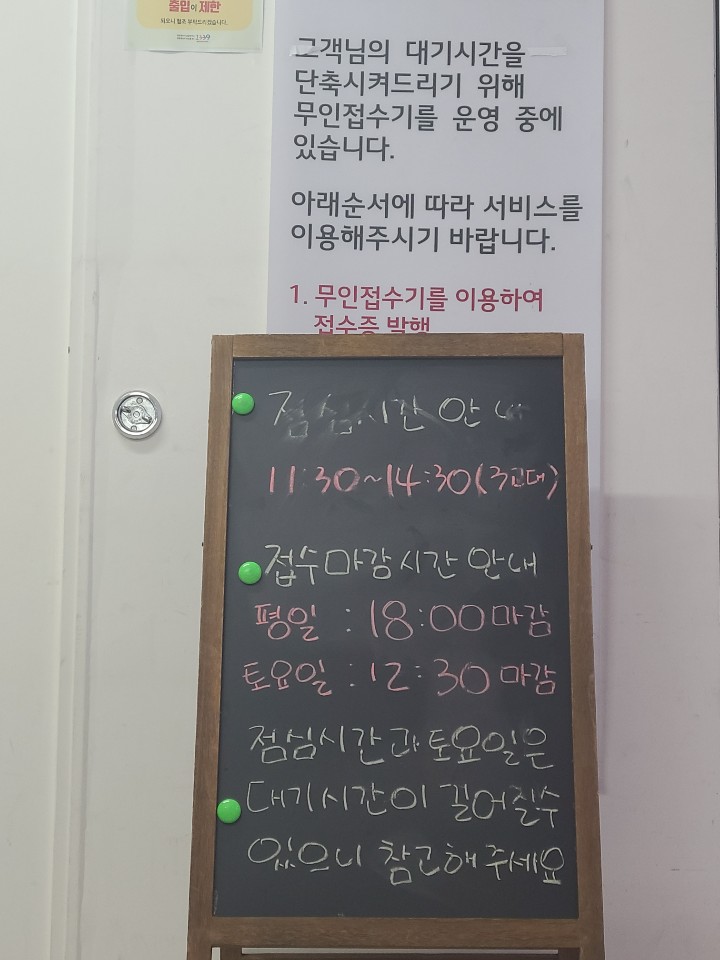 출입이 제한
되오니 협조 부탁드리겠습니다.
고객님의 대기시간을
단축시켜드리기 위해
무인접수기를 운영 중에
있습니다.
아래순서에 따라 서비스를
이용해주시기 바랍니다.
1. 무인접수기를 이용하여
접수증 발행
점심시간 안내
11:30~14:30(3교대)
접수마감시간 안내
평일 : 18:00 마감
토요일 : 12:30 마감
점심시간과 토요일은
대기시간이 길어질수
있으니 참고해주세요